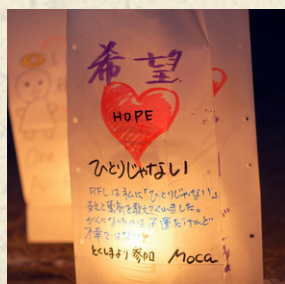 希望
HOPE
ひとりじゃない
RFLは私に「ひとりじゃない」
支えと勇気を教えてくれました。
がんになったのは不運だけれど
不幸ではない
とくしまより参加 Moca
One